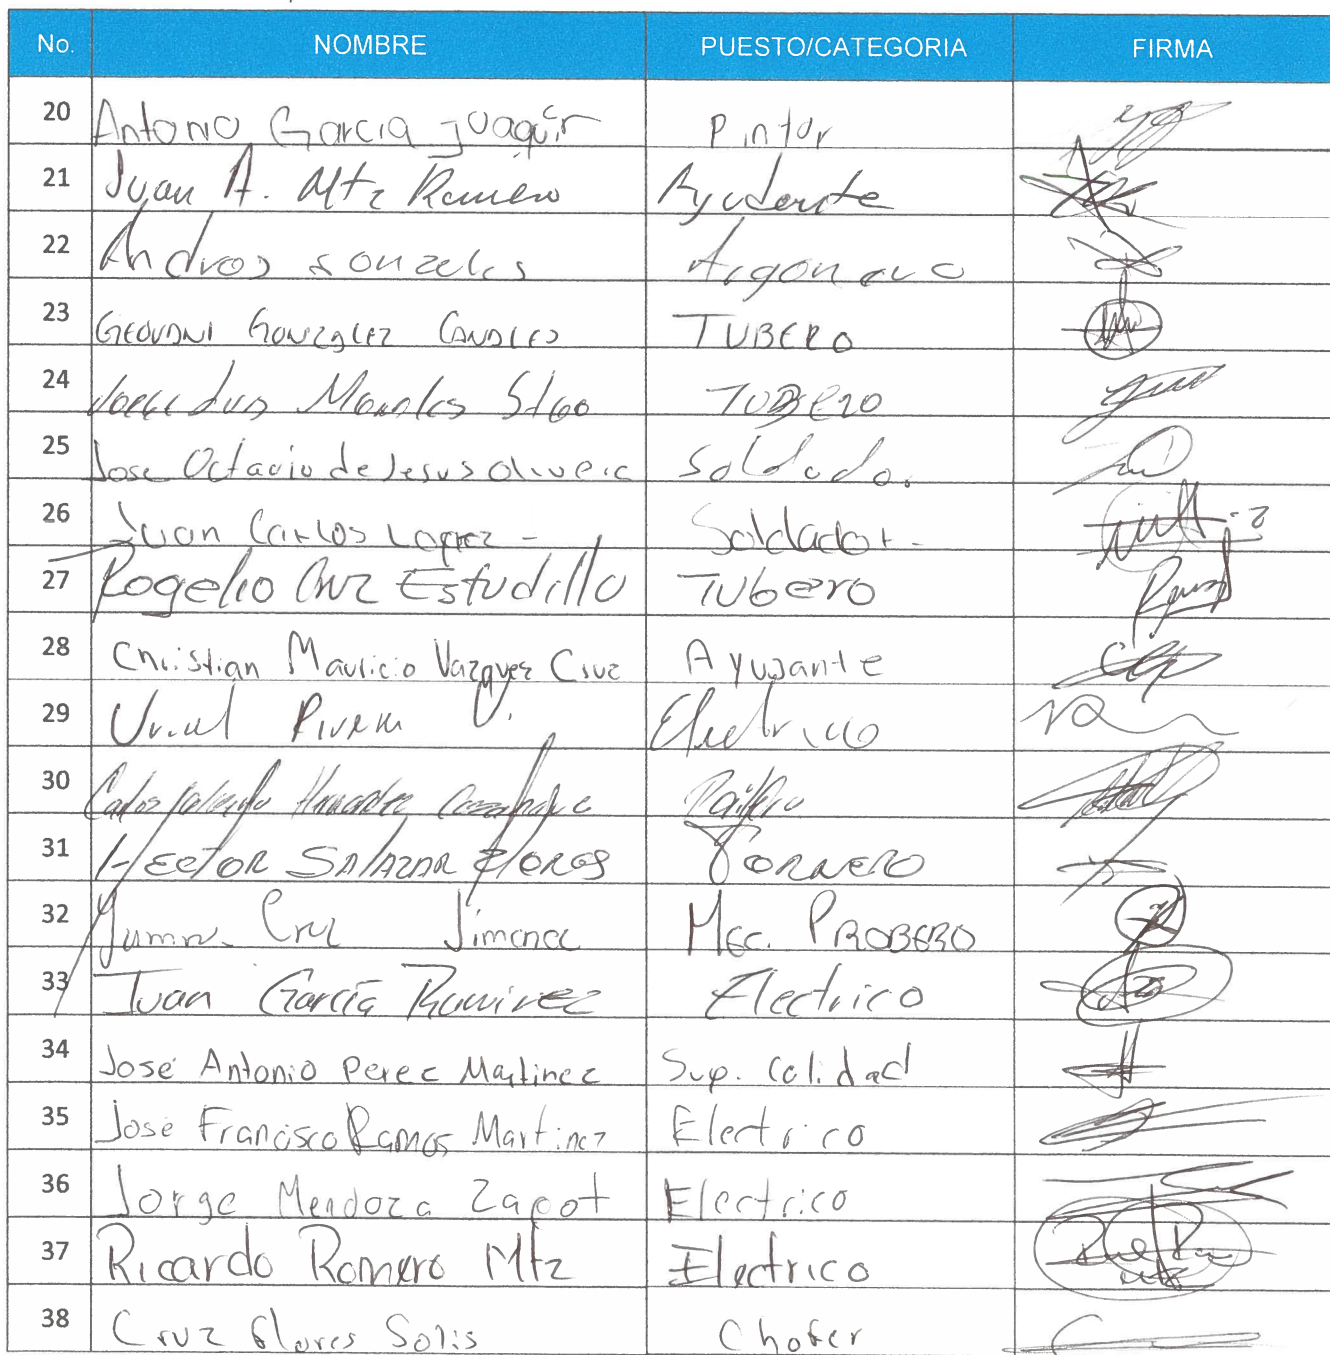 No. NOMBRE PUESTO/CATEGORIA FIRMA
20 Antonio Garcia Juaquin Pintor
21 Juan A. Mtz Romero Ayudante
22 Andres Gonzeles Argonero
23 GEOVANI GONZALEZ CANALES TUBERO
24 Morales Stgo TUBERO
25 Jose Octavio de Jesus Olivera Soldador
26 Juan Carlos Lopez - Soldador -
27 Rogelio Cruz Estudillo Tubero
28 Christian Mauricio Vazquez Cruz Ayudante
29 Uriel Rivera V. Electrico
30 Carlos Hernandez
31 HECTOR SALAZAR FLORES TORNERO
32 Cruz Jimenez MEC. PROBERO
33 Juan García Ramirez Electrico
34 José Antonio Perez Martinez Sup. Calidad
35 José Francisco Ramos Martinez Electrico
36 Jorge Mendoza Zapot Electrico
37 Ricardo Romero Mtz Electrico
38 Cruz flores Solis Chofer